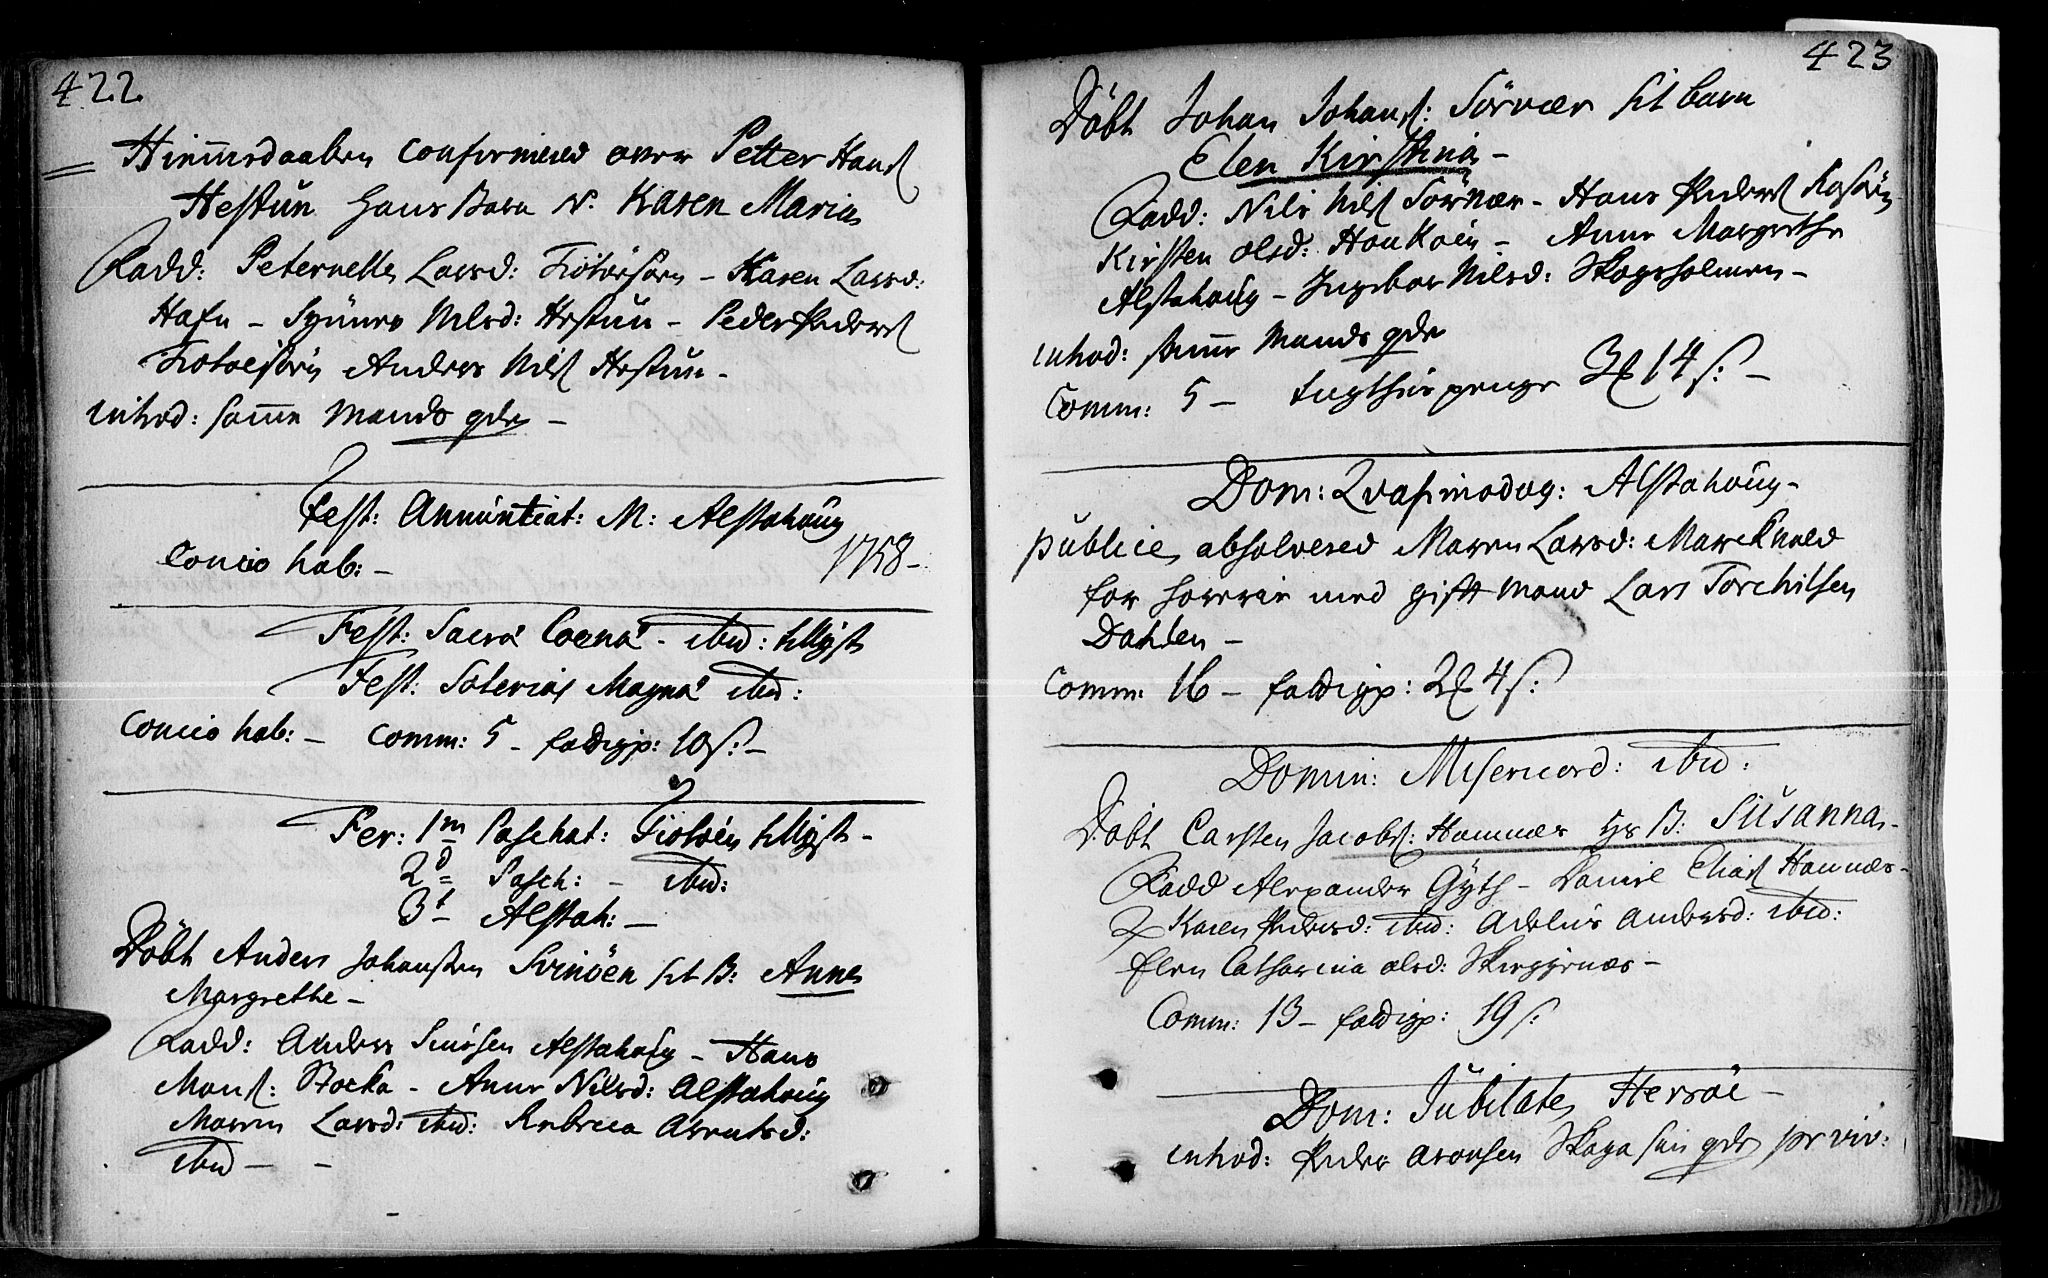 422
Hiemsdaaben confirmered over Petter Hans
Hestun hans Barn N. Karen Maria
Fadd: Peternelle Larsd: Tiötöe - Karen Larsd:
Hafn - Synnev Nilsd: Hestun - Peder Peders
Anders Nils Hestun -
introd: samme Mands qde -
Fest: Annuntiat: M: Alstahoug
Concio hab: - 1758 -
Fest: Sacra Coena - ibid:
Fest: Soterias Magna ibid:
Concio hab: - Comm: 5 - faldigp: 10 s: -
Fer: 1m Paschat: Tiötöen -
2d Pasch: - ibid:
3t Alstah: -
Döbt Anders Johansen Svinöen sit B: Anne
Margrethe -
Fadd: Anders Alstahoug - Hans
Mons: Stocka - Anne Nilsd: Alstahoug
Maren Larsd: ibid: Rebecca Arentsd:
ibid - -
423
Döbt Johan Johans: Sörvær sit barn
Elen Kirstina -
Fadd: Nils Nils Sörvær - Hans Peders Rosöen
Kirsten Olsd: Hauköen - Anne Margrethe
Alstahoug - Ingebor Nilsd: Skogsholmen -
introd: samme Mands qde
Comm: 5 - tugthuus penge 3 14 s: -
Dom: Qvasimodog: Alstahoug -
publice absolvered Maren Larsd: Marckvold
for horerie med gift Mand Lars Torchilsen
Dahlen -
Comm: 16 - faldigp: 2 4 s:
Domin: Misericord: ibid:
Döbt Carsten Jacobs: Hamnæs hs B: Susanna -
Fadd Alexander Gyth - Daniel Elias Hamnæs -
Karen Pedersd: ibid: Adelus Andersd: ibid:
Elen Catharina Olsd: Skieggenæs -
Comm: 13 - faldigp: 19 s:
Dom: Jubilate Herröe -
introd: Peder Aronsen Skaga sin qde pr viv: